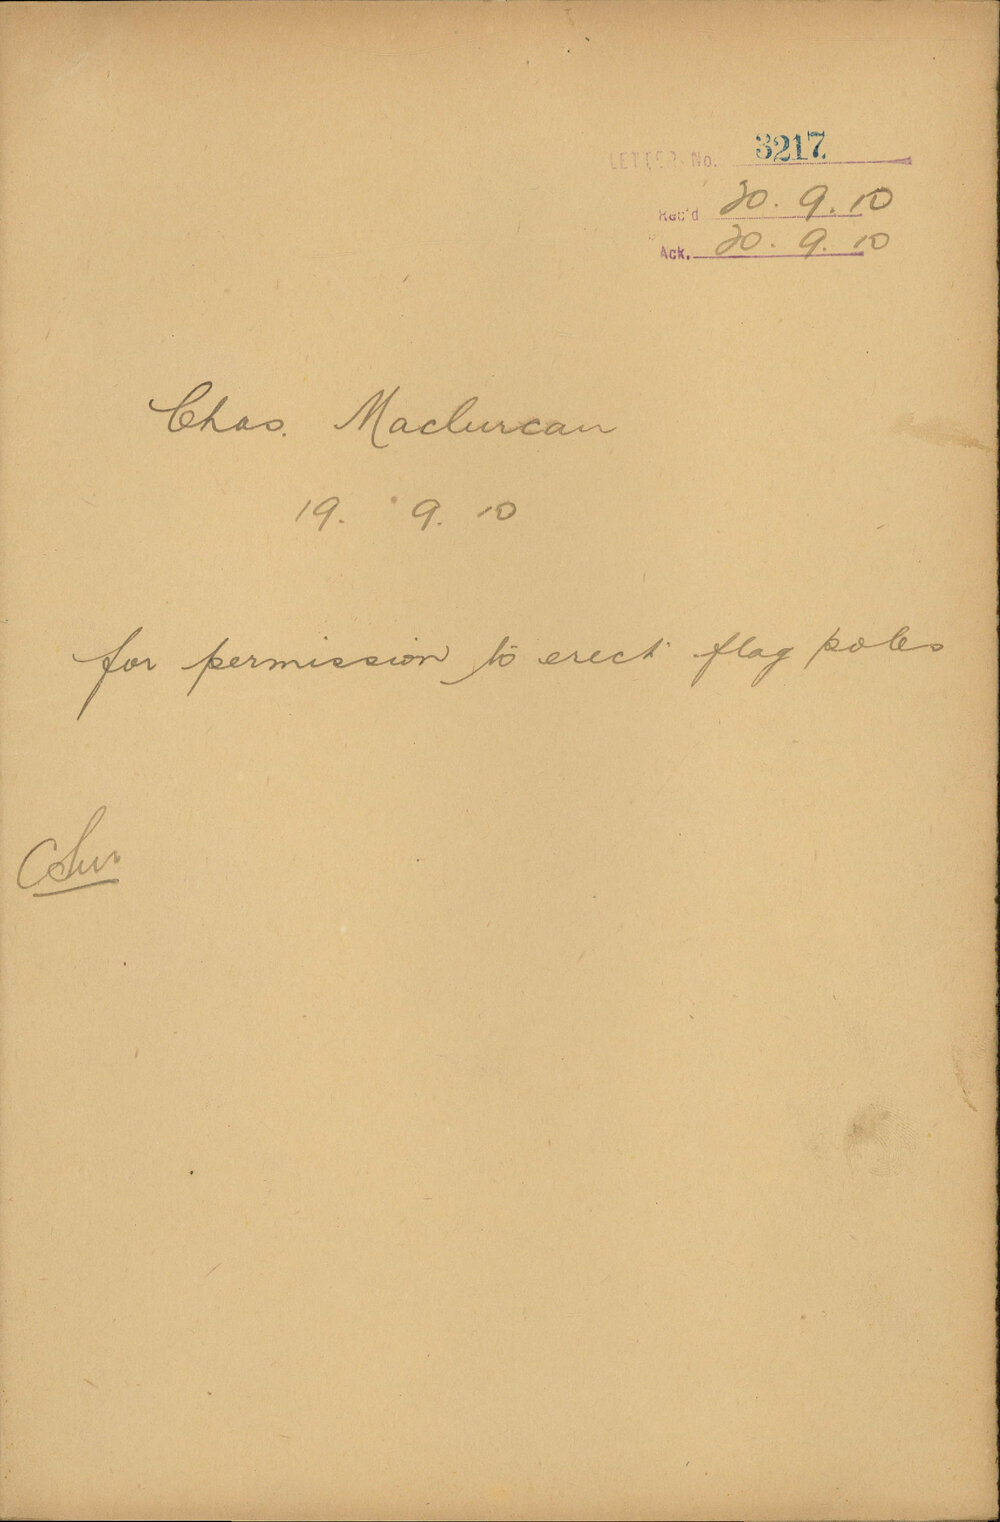 LETTER No. 3217
Rec'd 20. 9. 10
Ack. 20. 9. 10
Chas. Maclurcan
19. 9. 10
for permission to erect flag poles
C Sur